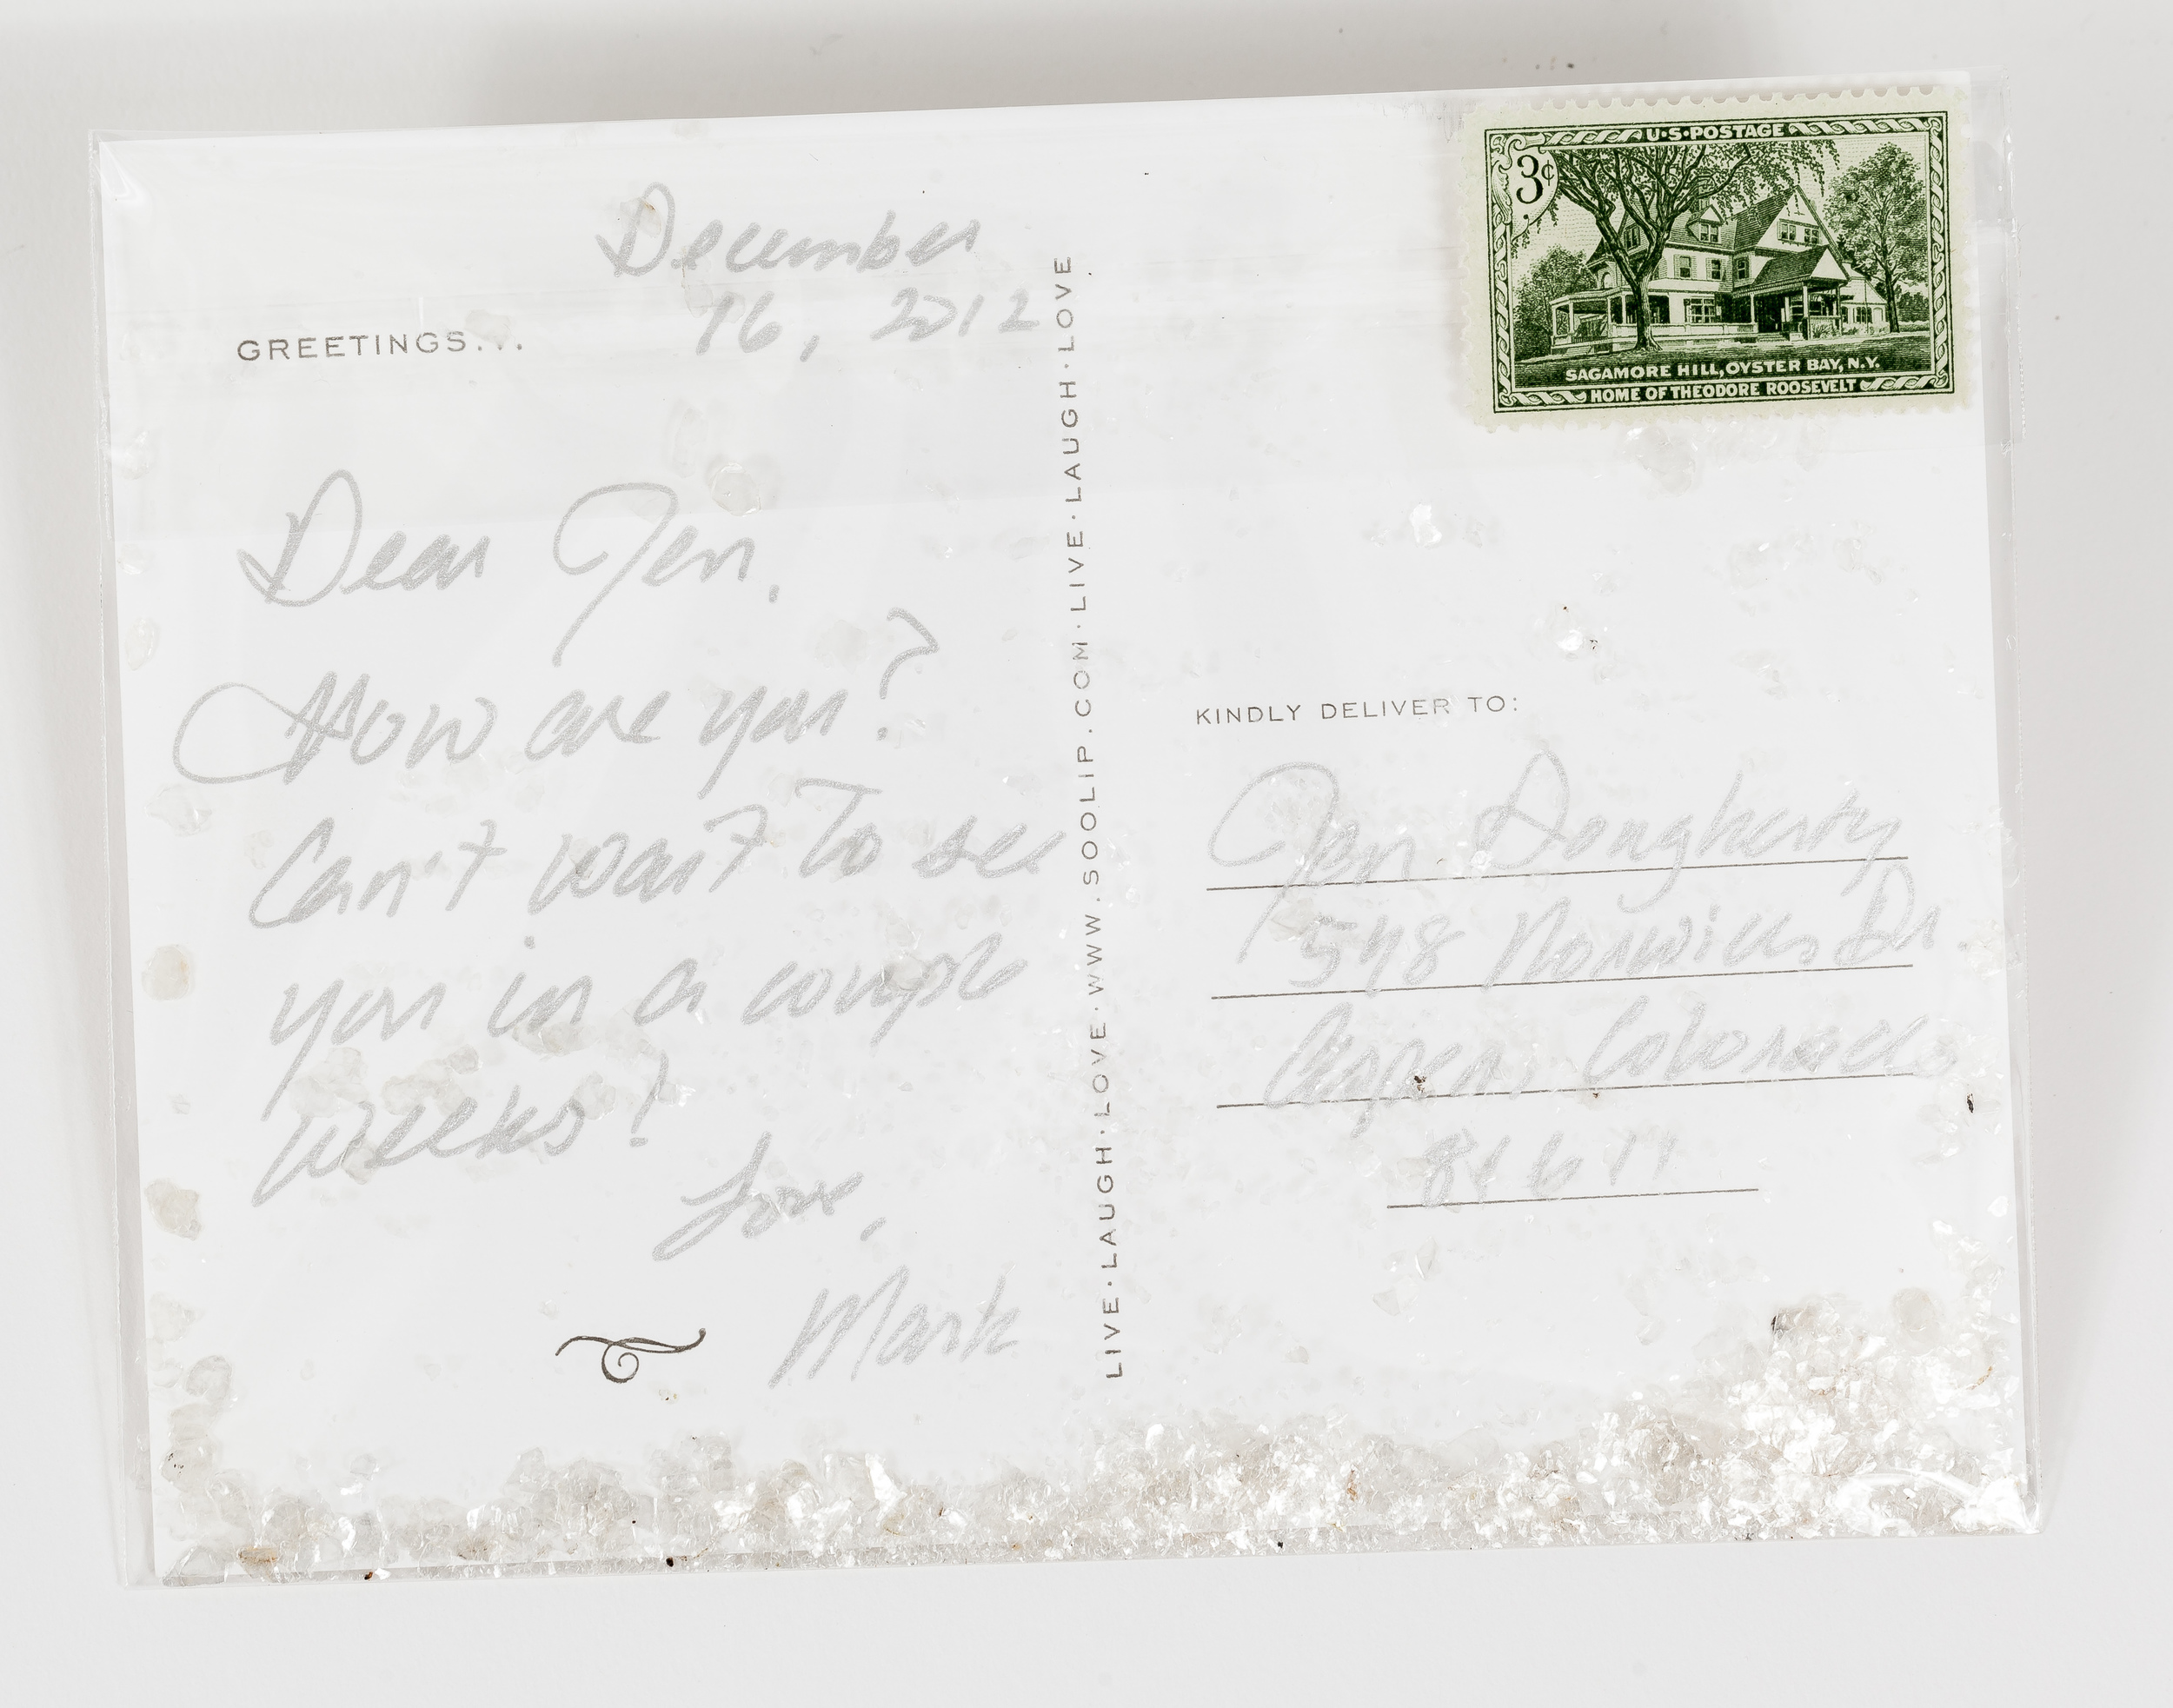 December
16, 2012
GREETINGS...
Dear Jen,
How are you?
Can't wait to see
you in a couple
weeks!
Love,
Mark
LIVE·LAUGH·LOVE·WWW.SOOLIP.COM·LIVE·LAUGH·LOVE
U·S·POSTAGE
3¢
SAGAMORE HILL, OYSTER BAY, N.Y.
HOME OF THEODORE ROOSEVELT
KINDLY DELIVER TO:
Jen Dougherty
548 Dr.
Aspen, Colorado
81611